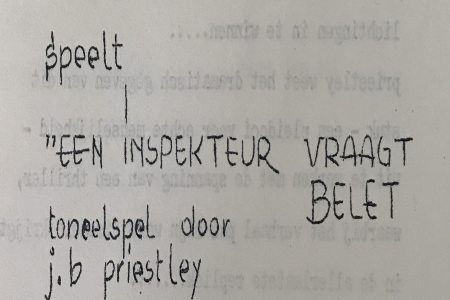 speelt
"EEN INSPEKTEUR VRAAGT
BELET
toneelspel door
j.b priestley